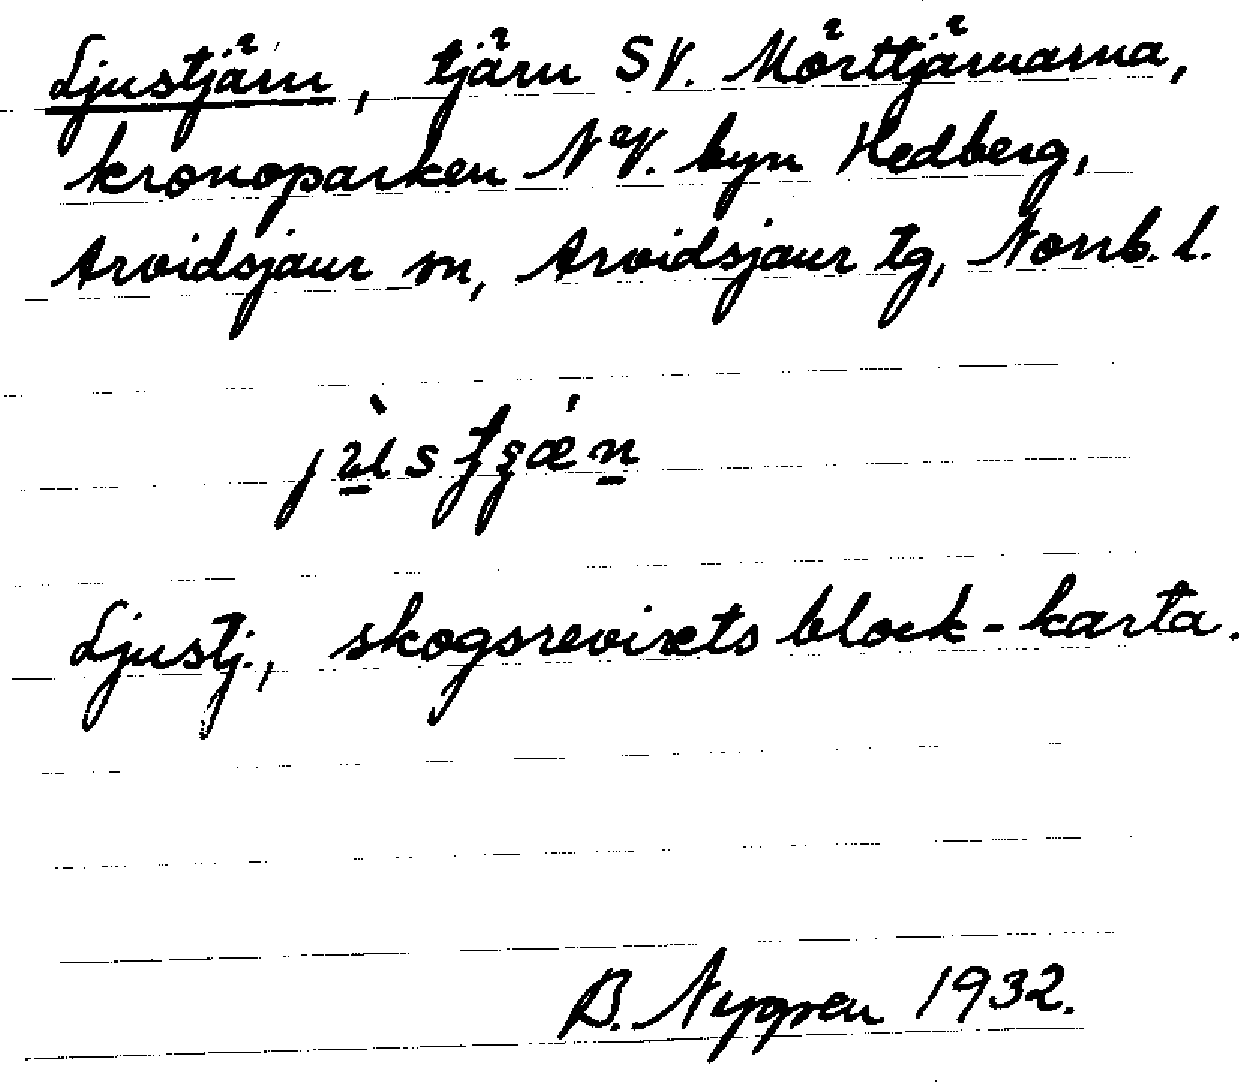 Ljustjärn, tjärn SV. Mörttjärnarna,
kronoparken NV. byn Hedberg,
Arvidsjaur sn, Arvidsjaur tg, Norrb. l.
Ljustj., skogsrevirets block-karta.
B. Nygren 1932.